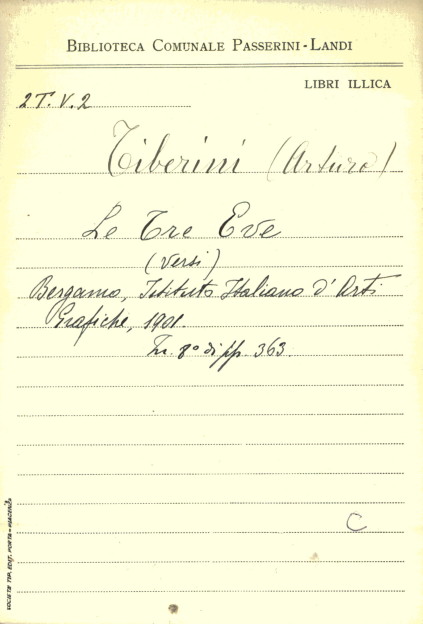 BIBLIOTECA COMUNALE PASSERINI-LANDI
LIBRI ILLICA
2T.V.2
Tiberini (Arturo)
Le Tre Eve
(Versi)
Bergamo, Istituto Italiano d'Arti
Grafiche, 1901.
In. 8º di pp. 363.
C
SOCIETÀ TIP. EDIT. PORTA - PIACENZA